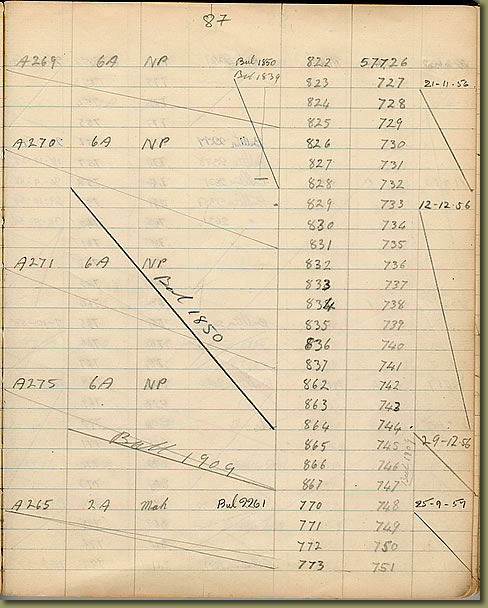 87
A269 6A NP Bul 1850 822 57726
Bul 1839 823 727 21-11-56
824 728
825 729
A270 6A NP 826 730
827 731
828 732
829 733 12-12-56
830 734
831 735
A271 6A NP 832 736
833 737
Bul 1850 834 738
835 739
836 740
837 741
A275 6A NP 862 742
863 743
864 744
Bull 1909 865 745 29-12-56
866 746
867 747
A265 2A Mah Bul 2261 770 748 25-9-57
771 749
772 750
773 751